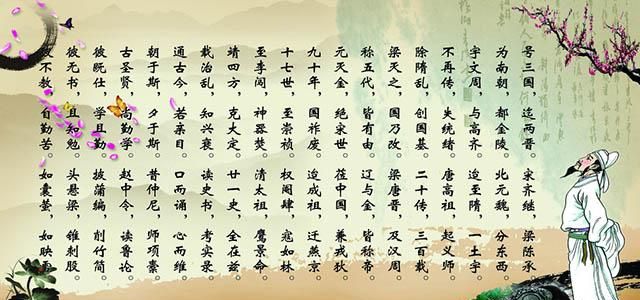 号三国，迄两晋。宋齐继，梁陈承。
为南朝，都金陵。北元魏，分东西。
宇文周，与高齐。迨至隋，一土宇。
不再传，失统绪。唐高祖，起义师。
除隋乱，创国基。二十传，三百载。
梁灭之，国乃改。梁唐晋，及汉周。
称五代，皆有由。辽与金，皆称帝。
元灭金，绝宋世。莅中国，兼戎狄。
九十年，国祚废。迨成祖，迁燕京。
十七世，至崇祯。权阉肆，寇如林。
至李闯，神器焚。清太祖，膺景命。
靖四方，克大定。廿一史，全在兹。
载治乱，知兴衰。读史书，考实录。
通古今，若亲目。口而诵，心而维。
朝于斯，夕于斯。昔仲尼，师项橐。
古圣贤，尚勤学。赵中令，读鲁论。
彼既仕，学且勤。披蒲编，削竹简。
彼无书，且知勉。头悬梁，锥刺股。
彼不教，自勤苦。如囊萤，如映雪。